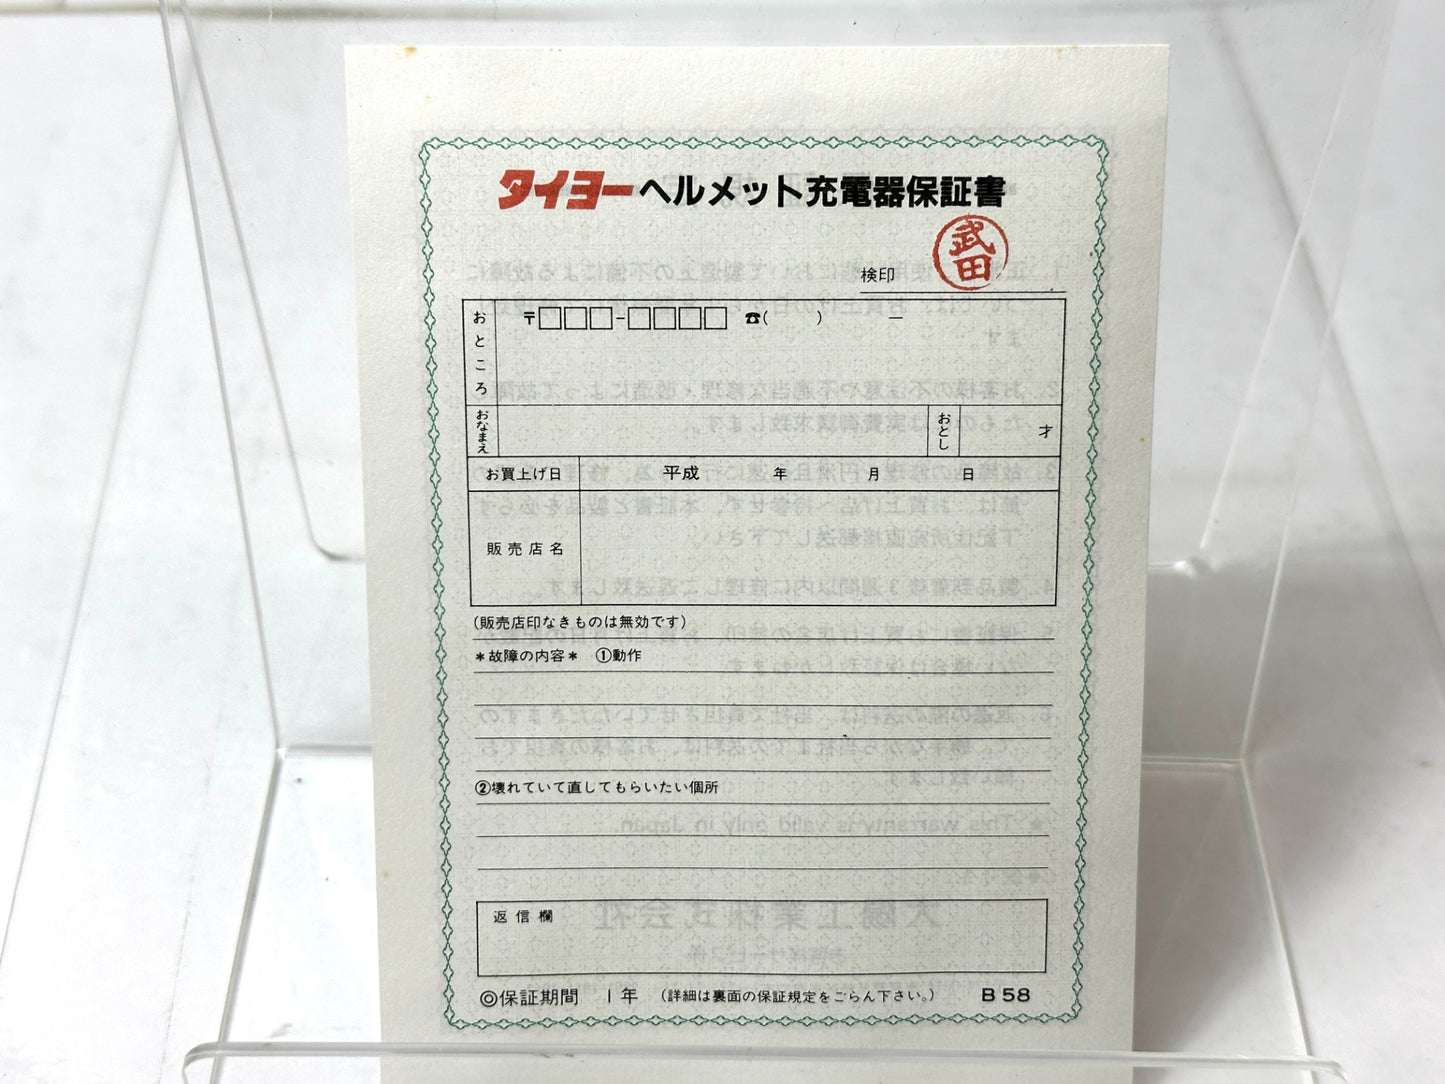 タイヨーヘルメット充電器保証書
検印
武田
おところ
〒□□□-□□□□ ☎( ) ー
おなまえ
おとし
才
お買上げ日 平成 年 月 日
販売店名
(販売店印なきものは無効です)
*故障の内容* ①動作
②壊れていて直してもらいたい個所
返信欄
◎保証期間 1年 (詳細は裏面の保証規定をごらん下さい。) B58